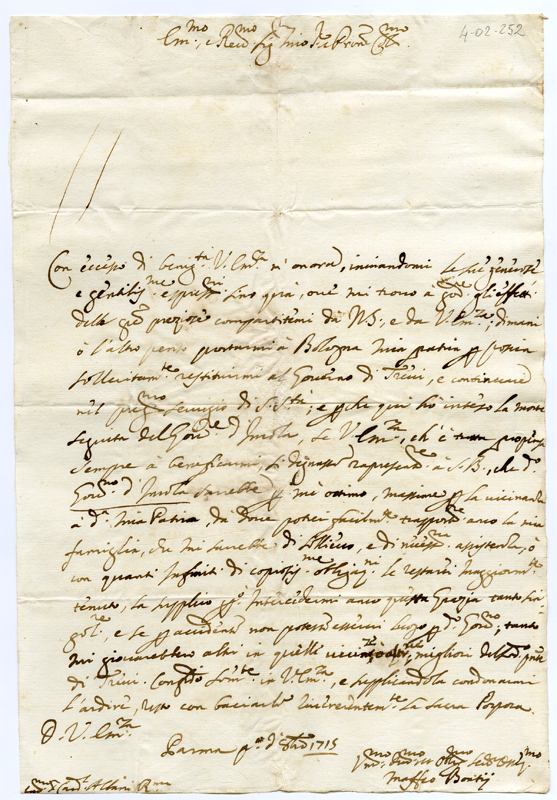 4-02-252
Em.mo e Re.mo Sig.r mio
Con eccesso di benig.tà V. Em.za m'onora, inviandomi le sue generose
e gentilis.me espress.ni sino quà, ove mi trovo à gli effetti
delle gre preziose compartitemi da N.S., e da V. Em.za; dimani
ò l'altro penso portarmi à Bologna mia patria p poscia
sollecitam.te restituirmi al Governo di Trevi, e continuare
nel servigio di S. S.tà; e perche qui hò inteso la morte
seguita del Gov.re d'Imola, se V. Em.za, ch'è propensa
sempre à beneficarmi, si degnasse rapresentare à S.B., che d.o
Gov.no d'Imola sarebbe p mè ottimo, massime p la vicinanza
à d.a mia Patria, da dove potrei facilm.te trasportare anco la mia
famiglia, che mi sarebbe di sollievo, e di assisterla, ò
con quanti infiniti di copiosis.me obligaz.ni le resterei maggiorm.te
tenuto, la supplico p intercedermi anco questa Grazia tanto sin-
gol.re, e se p accidente non potesse esservi luogo p d.o Gov.no, tanto
mi gioverebbero altri in quelle vicinanze, migliori del
di Trevi. Confido in V. Em.za, e supplicandola condonarmi
l'ardire, resto con baciarle reverentem.te la Sacra Porpora.
D. V. Em.za
Parma p.o d'8bre 1715
Maffeo Bontij
Card. Albani